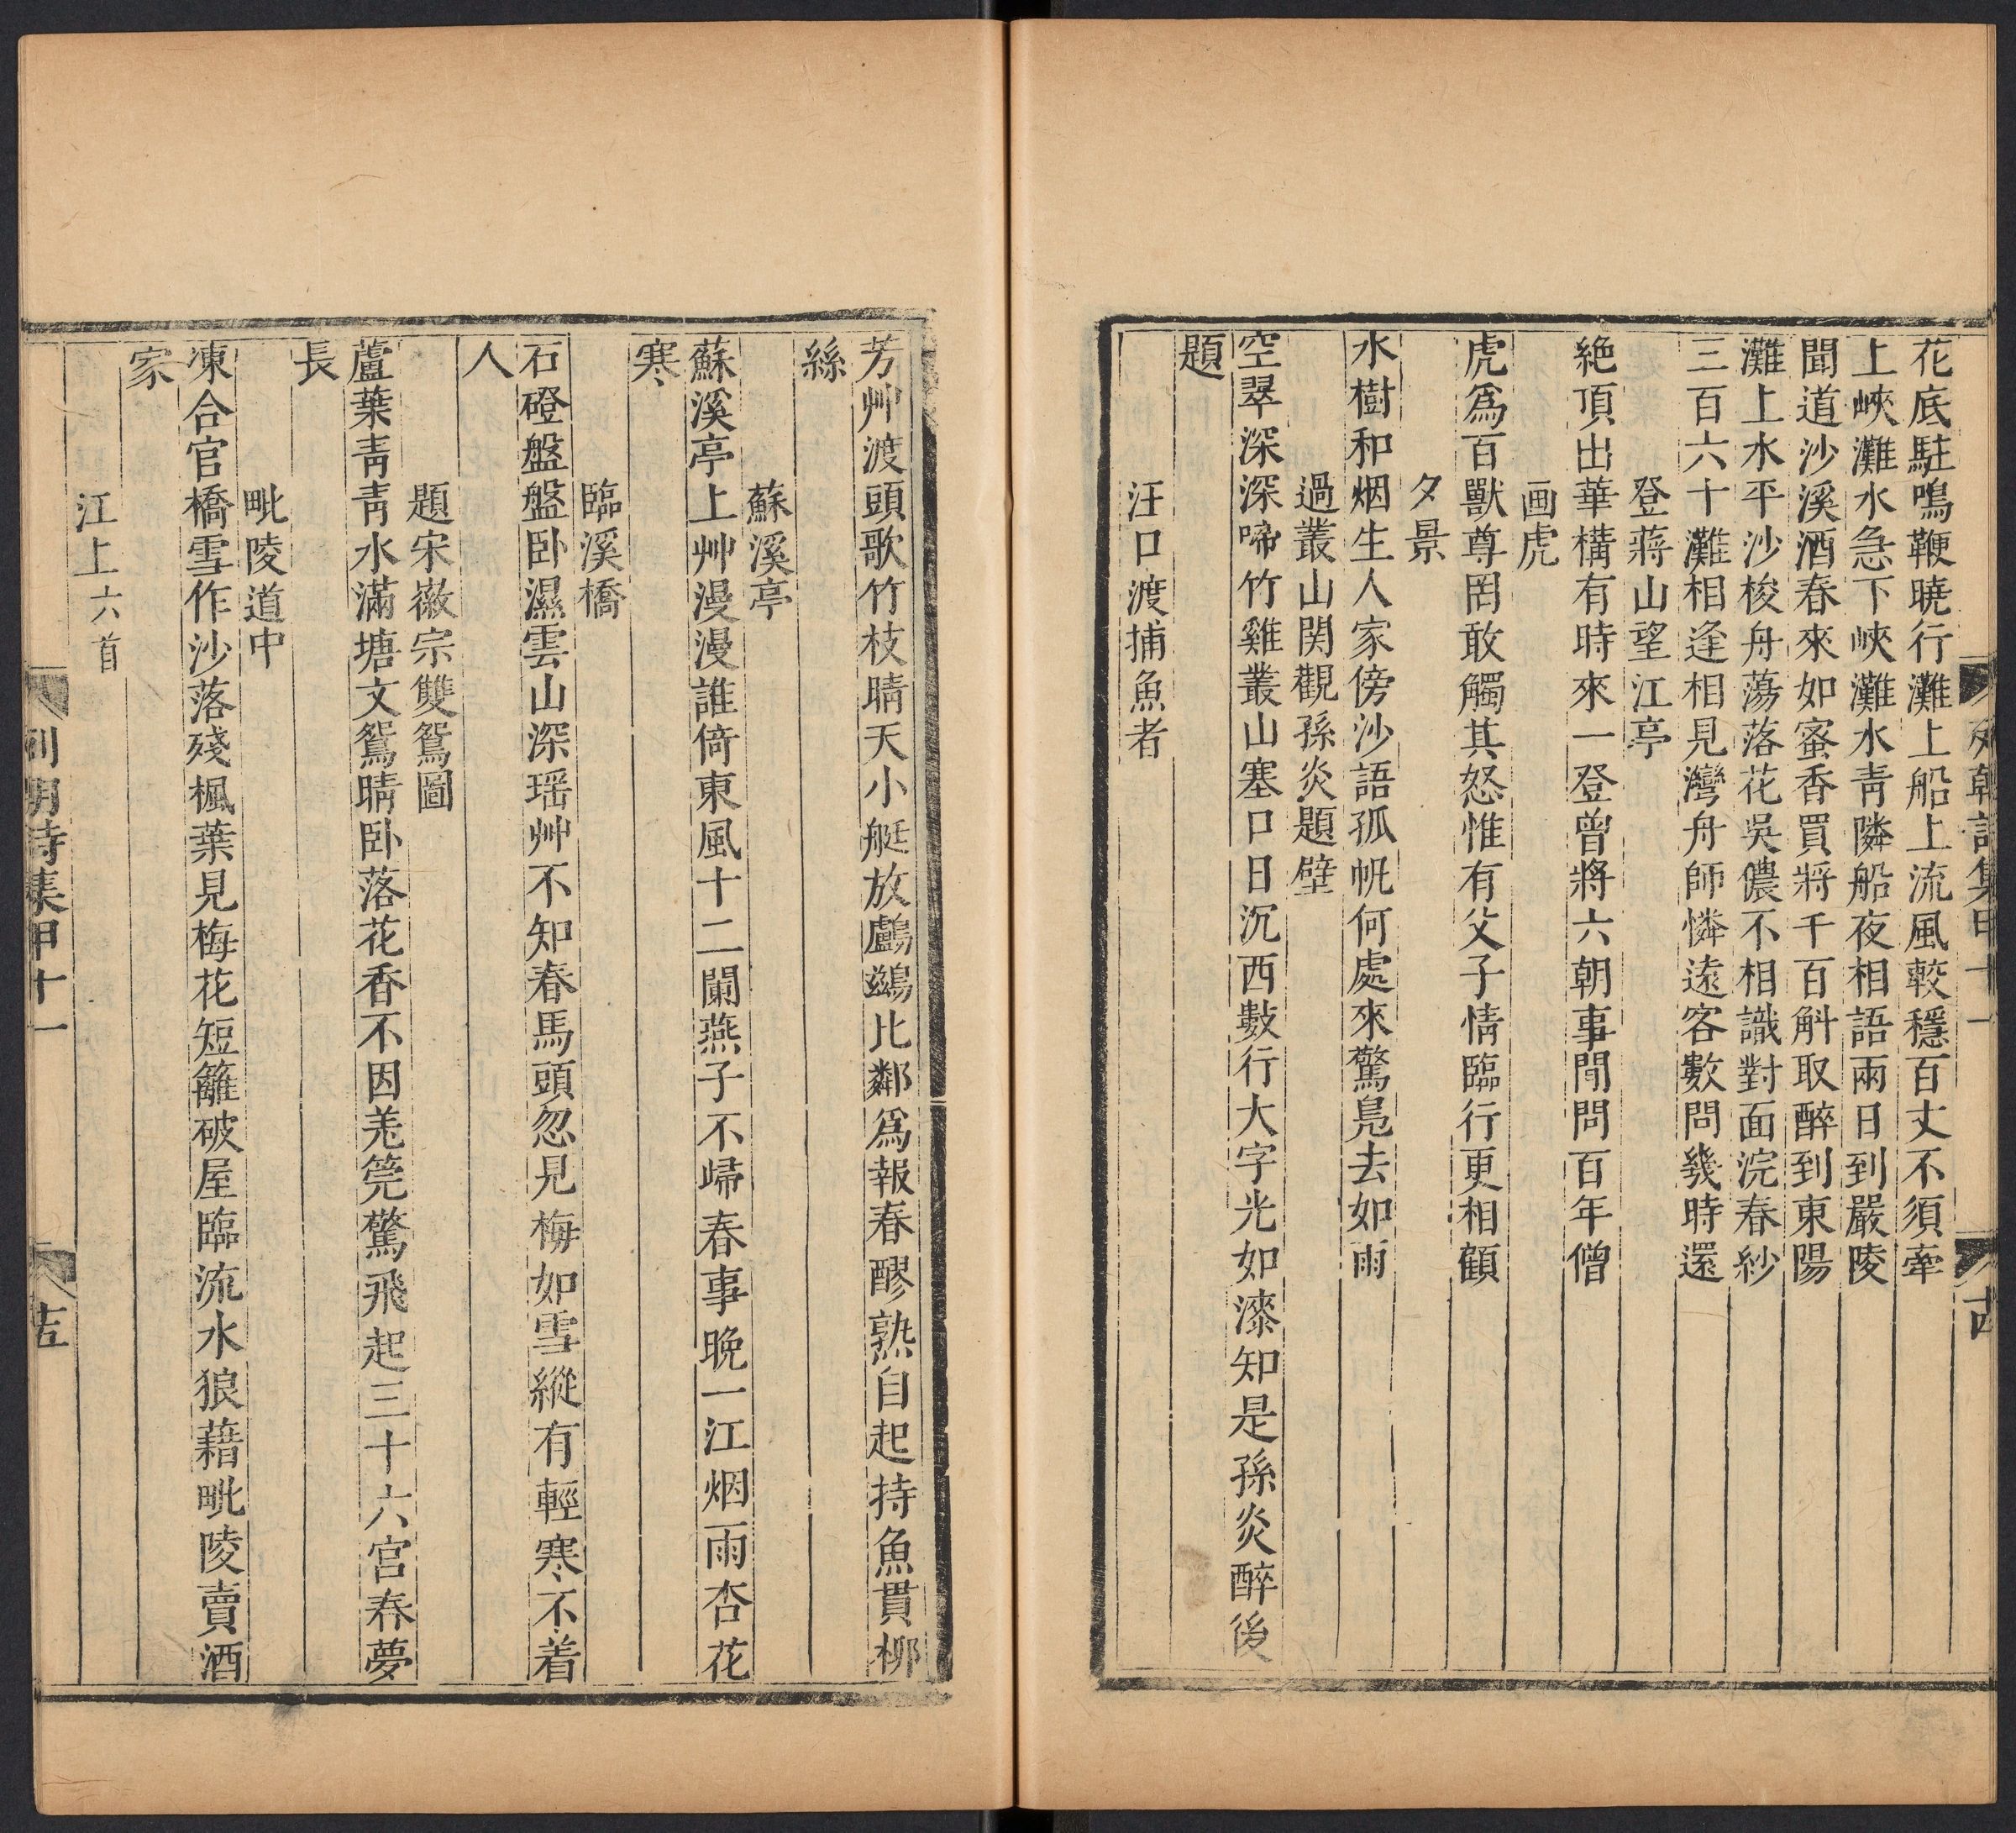 花底駐鳴鞭曉行灘上船上流風較穩百丈不須牽
上峽灘水急下峽灘水青隣船夜相語兩日到嚴陵
聞道沙溪酒春來如蜜香買將千百斛取醉到東陽
灘上水平沙梭舟蕩落花吳儂不相識對面浣春紗
三百六十灘相逢相見灣舟師憐遠客數問幾時還
登蔣山望江亭
絶頂出華構有時來一登曾將六朝事閒問百年僧
画虎
虎爲百獸尊罔敢觸其怒惟有父子情臨行更相顧
夕景
水樹和烟生人家傍沙語孤帆何處來驚鳧去如雨
過叢山関觀孫炎題壁
空翠深深啼竹雞叢山塞口日沉西數行大字光如漆知是孫炎醉後
題
汪口渡捕魚者
芳艸渡頭歌竹枝晴天小艇放鸕鷀比鄰爲報春醪熟自起持魚貫柳
絲
蘇溪亭
蘇溪亭上艸漫漫誰倚東風十二闌燕子不歸春事晚一江烟雨杏花
寒
臨溪橋
石磴盤盤卧濕雲山深瑶艸不知春馬頭忽見梅如雪縱有輕寒不着
人
題宋徽宗雙鴛圖
蘆葉青青水滿塘文鴛晴卧落花香不因羌筦驚飛起三十六宮春夢
長
毗陵道中
凍合官橋雪作沙落殘楓葉見梅花短籬破屋臨流水狼藉毗陵賣酒
家
江上六首
列朝詩集甲十一
十五